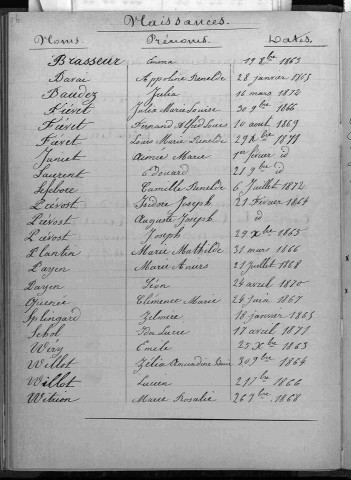 Naissances.
Noms. Prénoms. Dates.
Brasseur Emma 19 8bre 1863
Darai Appoloie Renelde 28 janvier
Daudez Julia 16 mars 1872
Fiévet Julia Marie Louise 30 9bre 1866
Fiévet Fernand Alfred Louis 10 août 1869
Fiévet Louis Marie Renelde 29 Xbre 1871
Juniet Aimée Marie 1er février id
Laurent Edouard 21 9bre id
Lefebvre Camille Renelde 6 Juillet 1872
Liévost Isidore Joseph 21 Février 1864
Liévost Auguste Joseph d
Liévost Joseph 29 Xbre 1865
Plantin Marie Mathilde 31 mars 1866
Payen Marie 21 juillet 1868
Payen Léon 24 avril 1870
Quenée Clémence Marie 26 juin 1867
Splingard Zelmire 18 janvier 1865
Schol Lucie 17 avril 1871
Wéry Emile 25 Xbre 1863
Willot Zélia Amandine 30 9bre 1864
Willot Lucien 21 7bre 1866
Witvion Marie Rosalie 26 7bre 1868